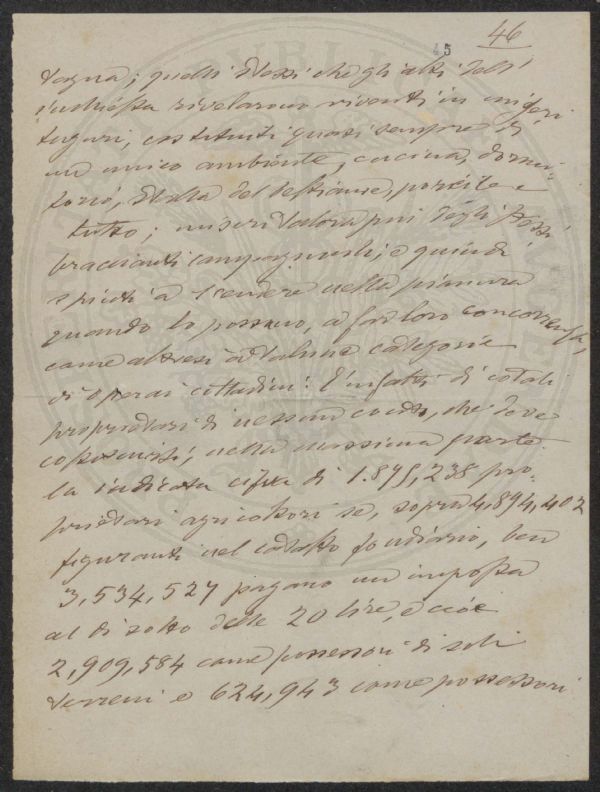 46
45
tagna; quelli stessi che gli atti dell'
inchiesta rivelarono viventi in miseri
tuguri, costituiti quasi sempre di
un unico ambiente, cucina, dormi-
torio, stalla del bestiame, porcile e
tutto; miseri talora più degli stessi
braccianti campagnuoli; e quindi
spinti a scendere nella pianura
quando lo possano, a far loro concorrenza,
come altresì a talune categorie
di operai cittadini: È infatti di cotali
proprietari di nessun conto, che deve
costituirsi, nella massima parte
la indicata cifra di 1.875,238 pro-
prietari agricoltori se, sopra 4,894,402
figuranti nel catasto fondiario, ben
3,534,527 pagano un imposta
al di sotto delle 20 lire, e cioè
2,909,584 come possessori di soli
terreni e 624,943 come possessori